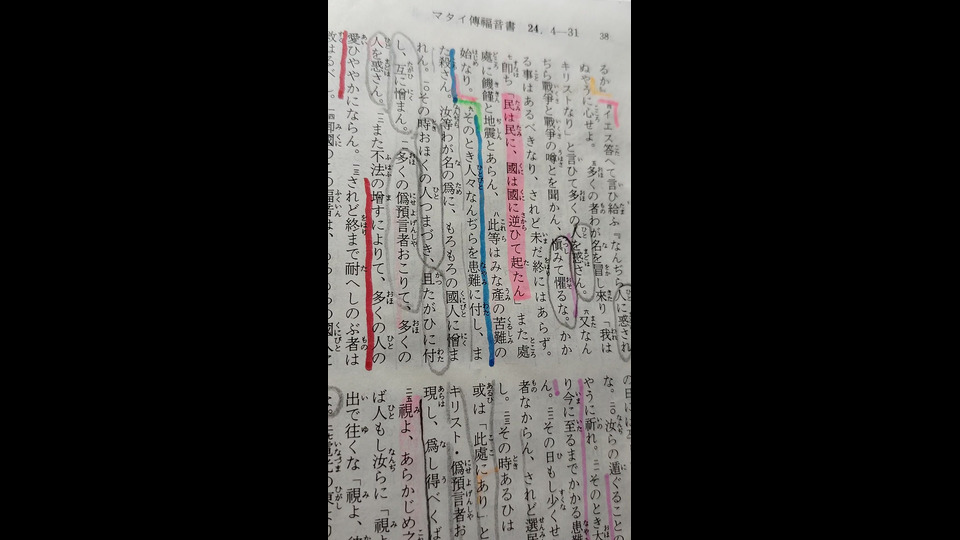 マタイ傳福音書 24.4—31 38
るか』 四イエス答へて言ひ給ふ『なんぢら人に惑され
ぬやうに心せよ。 五多くの者わが名を冒し來り「我は
キリストなり」と言ひて多くの人を惑さん。 六又なん
ぢら戰爭と戰爭の噂とを聞かん、愼みて懼るな。かか
る事はあるべきなり、されど未だ終にはあらず。
七即ち「民は民に、國は國に逆ひて起たん」また處
處に饑饉と地震とあらん、 八此等はみな産の苦難の
始なり。 九そのとき人々なんぢらを患難に付し、ま
た殺さん。汝等わが名の爲に、もろもろの國人に憎ま
れん。 一〇その時おほくの人つまづき、且たがひに付
し、互に憎まん。 一一多くの僞預言者おこりて、多くの
人を惑さん。 一二また不法の増すによりて、多くの人の
愛ひややかにならん。 一三されど終まで耐へしのぶ者は
の日に
な。 二〇汝らの遁ぐることの
やうに祈れ。 二一そのとき大
り今に至るまでかかる患難
ん。 二二その日もし少くせ
者なからん、されど選民
し。 二三その時あるひは
或は「此處にあり」と
キリスト・僞預言者お
現し、爲し得べくば
二五視よ、あらかじめ之
ば人もし汝らに「視よ
出で往くな「視よ、彼